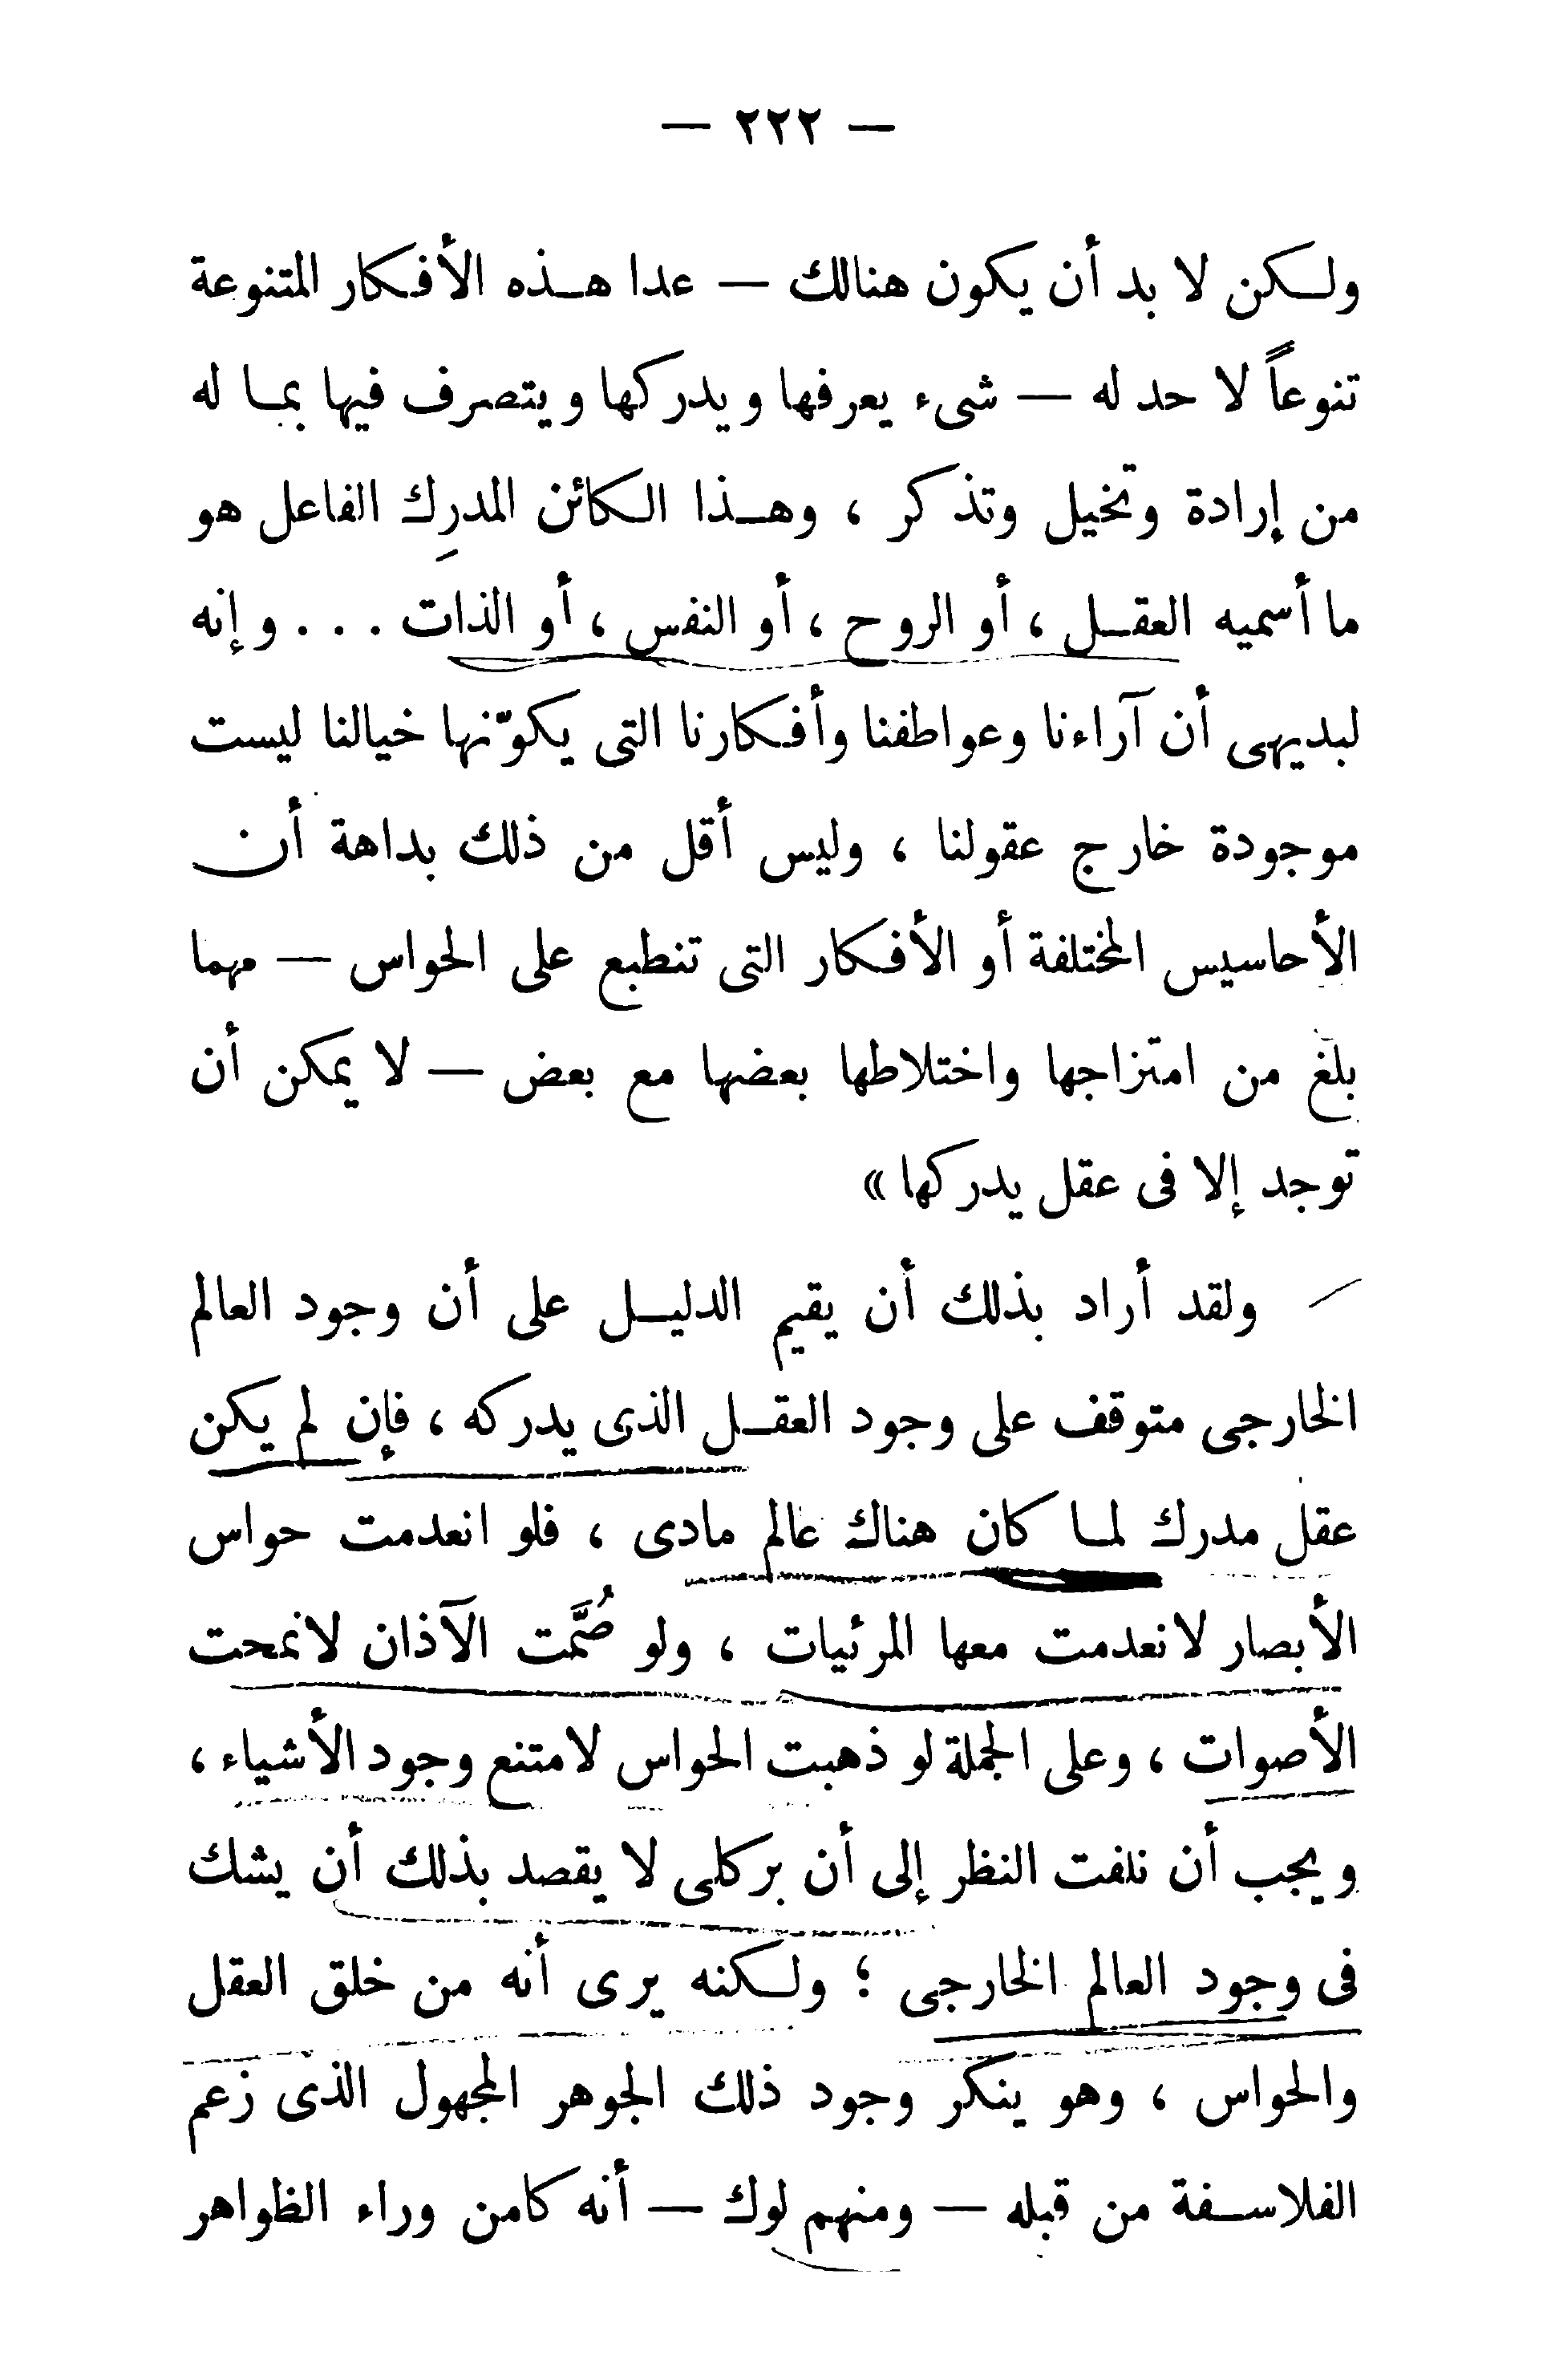 — ٢٢٢ —
ولكن لا بد أن يكون هنالك — عدا هذه الأفكار المتنوعة
تنوعاً لا حد له — شىء يعرفها ويدركها ويتصرف فيها بما له
من إرادة وتخيل وتذكر ، وهذا الكائن المدرِك الفاعل هو
ما أسميه العقل ، أو الروح ، أو النفس ، أو الذات . . . وإنه
لبديهى أن آراءنا وعواطفنا وأفكارنا التى يكوّنها خيالنا ليست
موجودة خارج عقولنا ، وليس أقل من ذلك بداهة أن
الأحاسيس المختلفة أو الأفكار التى تنطبع على الحواس — مهما
بلغ من امتزاجها واختلاطها بعضها مع بعض — لا يمكن أن
توجد إلا فى عقل يدركها »
ولقد أراد بذلك أن يقيم الدليل على أن وجود العالم
الخارجى متوقف على وجود العقل الذى يدركه ، فإن لم يكن
عقل مدرك لما كان هناك عالم مادى ، فلو انعدمت حواس
الأبصار لانعدمت معها المرئيات ، ولو صُمَّت الآذان لانمحت
الأصوات ، وعلى الجملة لو ذهبت الحواس لامتنع وجود الأشياء ،
ويجب أن نلفت النظر إلى أن بركلى لا يقصد بذلك أن يشك
فى وجود العالم الخارجى ؛ ولكنه يرى أنه من خلق العقل
والحواس ، وهو ينكر وجود ذلك الجوهر المجهول الذى زعم
الفلاسفة من قبله — ومنهم لوك — أنه كامن وراء الظواهر